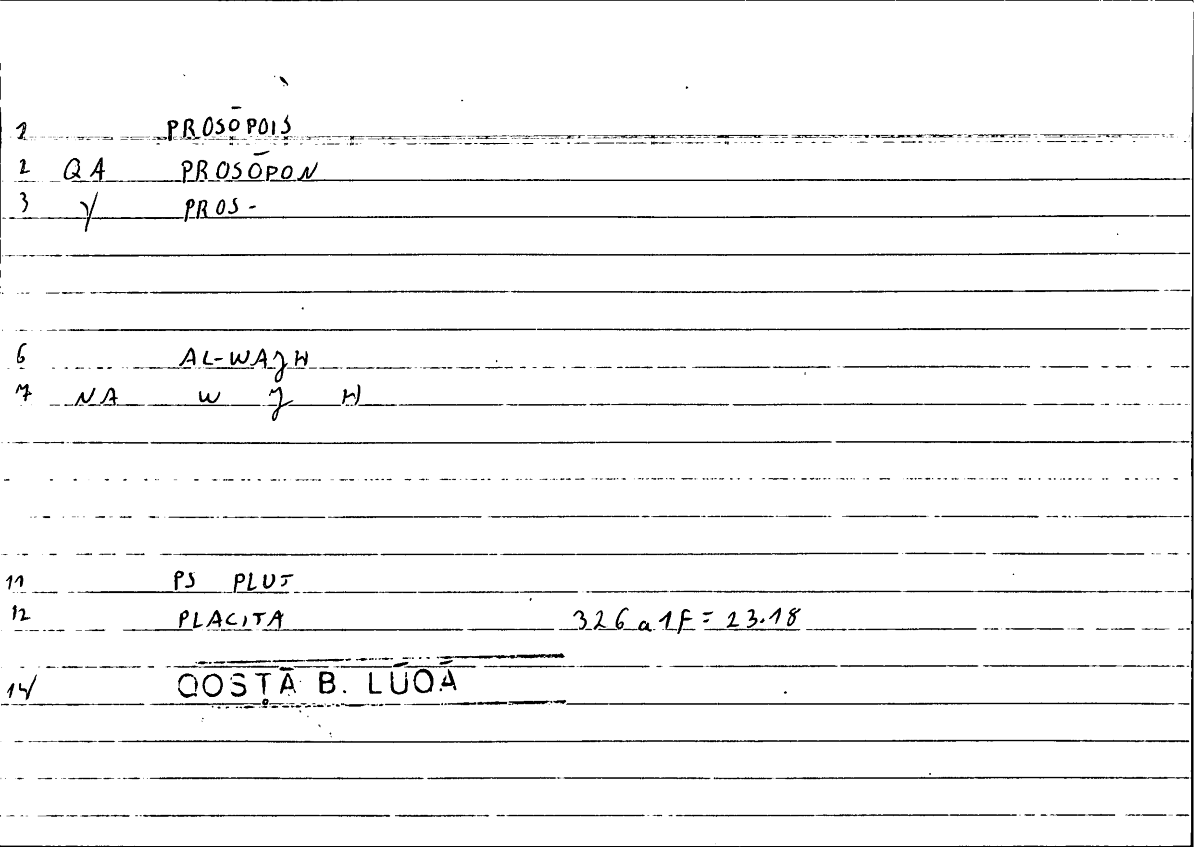 1 PROSŌPOIS
2 QA PROSŌPON
3 Y PROS-
6 AL-WAJH
7 NA W J H
11 PS PLUT
12 PLACITA 326a1F = 23.18
14 QOSṬĀ B. LŪQĀ